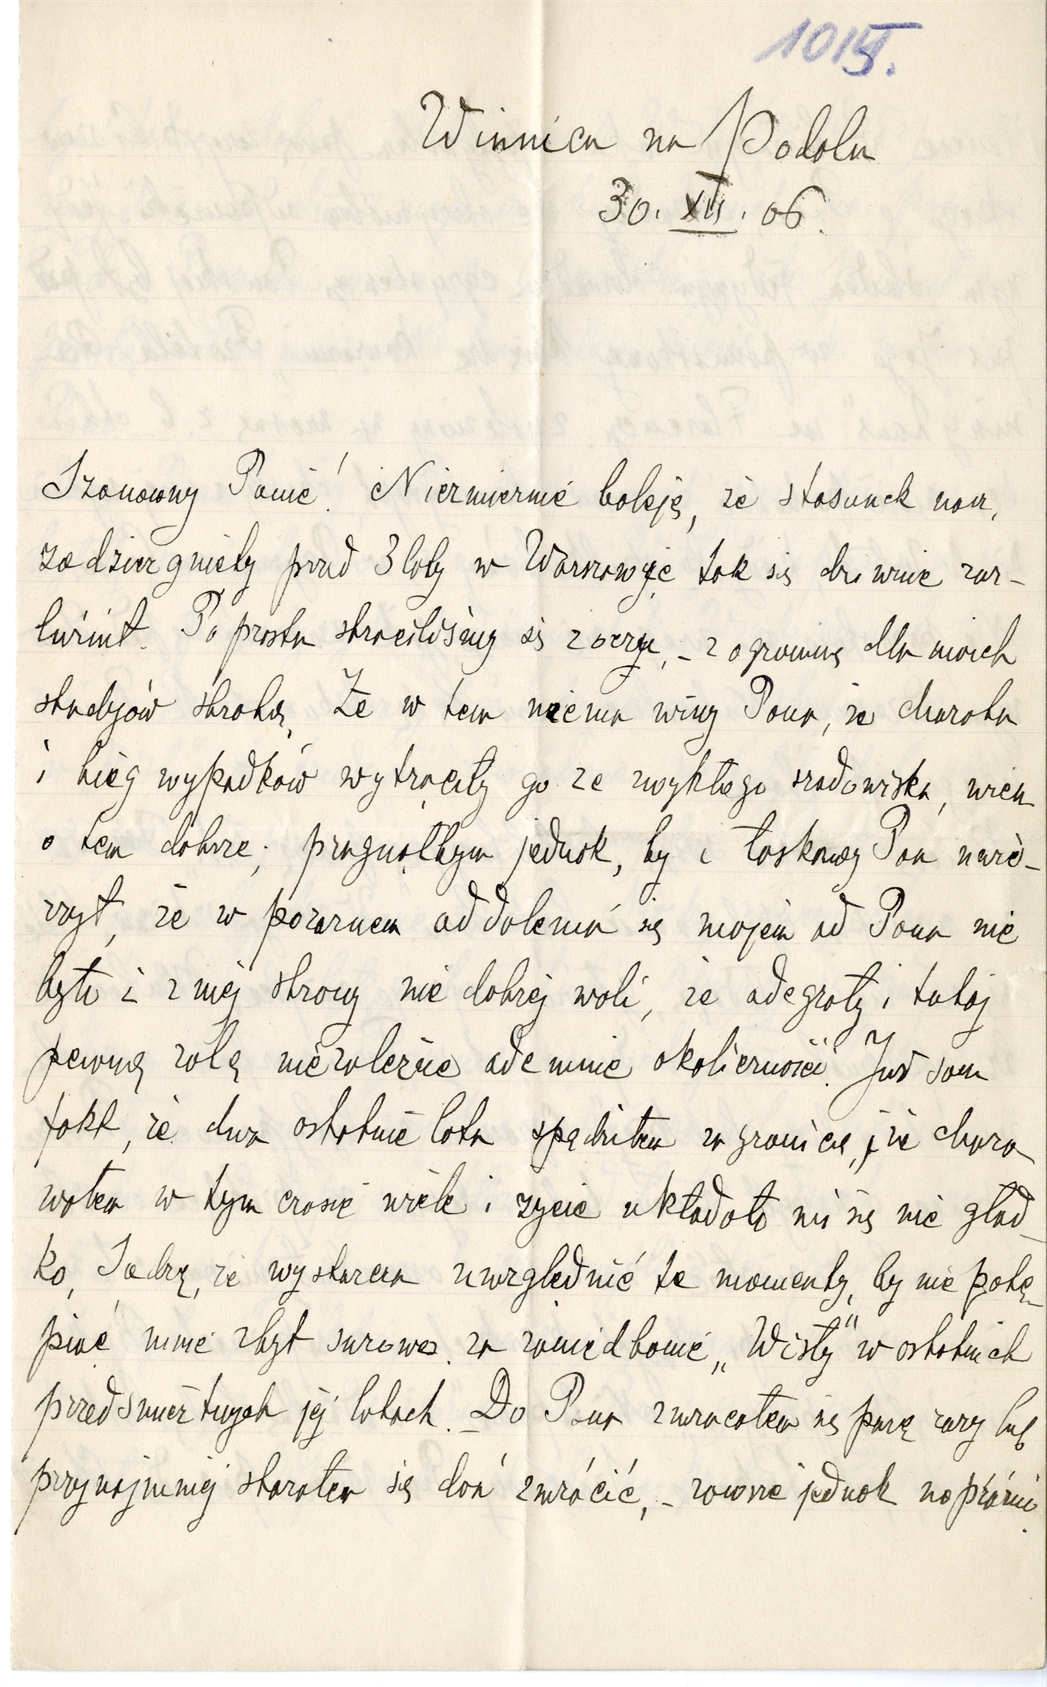 101
Winnica na Podolu
30. XII. 06.
Szanowny Panie! Niezmiernie boleję, że stosunek nasz,
zadzierzgnięty przed 3 laty w Warszawie tak się dziwnie roz-
luźnił. Po prostu straciliśmy się z oczu, – z ogromną dla moich
studyów stratą. Że w tem niema winy Pana, że choroba
i bieg wypadków wytrąciły go ze zwykłego środowiska, wiem
o tem dobrze; pragnąłbym jednak, by i łaskawy Pan uwie-
rzył, że w pozornem oddaleniu się mojem od Pana nie
było i z mej strony nie dobrej woli, że odegrały i tutaj
pewną rolę niezależne odemnie okoliczności. Już sam
fakt, że dwa ostatnie lata spędziłem za granicą, że choro
wałem w tym czasie wiele i życie układało mi się nie gład-
ko, Sądzę, że wystarcza uwzględnić te momenty, by nie potę-
piać mnie zbyt surowo za zaniedbanie „Wisły" w ostatnich
przedśmiertnych jej latach. – Do Pana zwracałem się parę razy lub
przynajmniej starałem się doń zwrócić, – zawsze jednak napróżno.